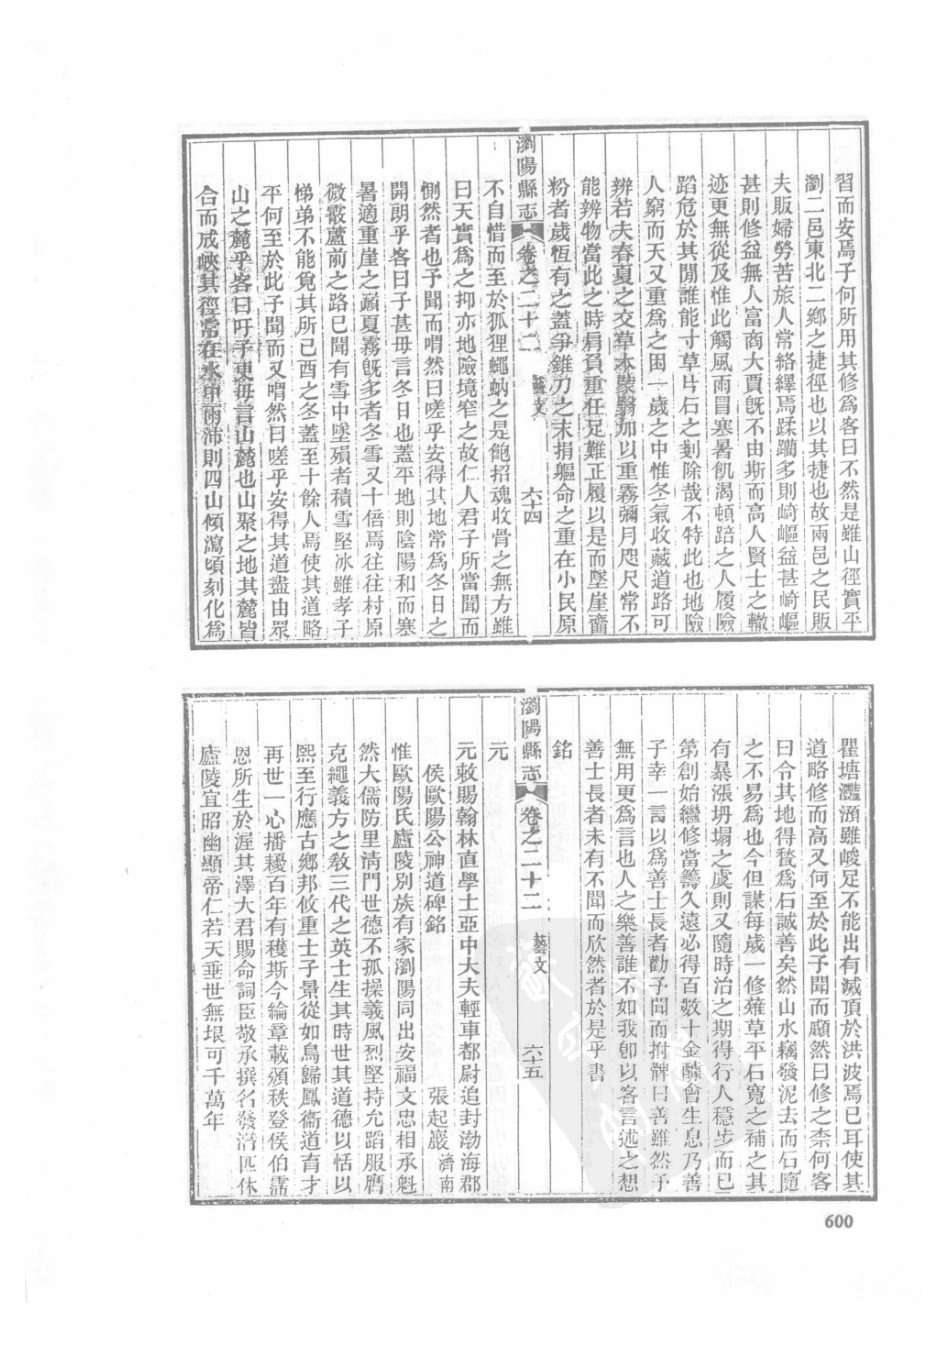 習而安焉子何所用其修爲客曰不然是雖山徑實平
瀏二邑東北二鄉之捷徑也以其捷也故兩邑之民販
夫販婦勞苦旅人常絡繹焉蹂躪多則崎嶇益甚崎嶇
甚則修益無人富商大賈旣不由斯而高人賢士之轍
迹更無從及惟此觸風雨冒寒暑飢渴頓踣之人履險
蹈危於其閒誰能寸草片石之剗除哉不特此也地險
人窮而天又重爲之困一歲之中惟冬氣收藏道路可
辨若夫春夏之交草木蓊翳加以重霧彌月咫尺常不
能辨物當此之時肩負重任足難正履以是而墜崖齏
粉者歲恆有之蓋爭錐刀之末捐軀命之重在小民原
瀏陽縣志 卷之二十二 藝文 六十四
不自惜而至於狐狸蠅蚋之是飽招魂收骨之無方雖
曰天實爲之抑亦地險境窄之故仁人君子所當聞而
惻然者也予聞而喟然曰嗟乎安得其地常爲冬日之
開朗乎客曰子甚毋言冬日也蓋平地則陰陽和而寒
暑適重崖之巔夏霧旣多者冬雪又十倍焉往往村原
微霰蘆前之路已聞有雪中墜殞者積雪堅冰雖孝子
悌弟不能覓其所已酉之冬蓋至十餘人焉使其道略
平何至於此予聞而又喟然曰嗟乎安得其道盡由眾
山之麓乎客曰吁子更毋言山麓也山聚之地其麓皆
合而成峽其徑常在水中雨沛則四山傾瀉頃刻化爲
瞿塘灩澦雖峻足不能出有滅頂於洪波焉已耳使其
道略修而高又何至於此予聞而顣然曰修之柰何客
曰令其地得甃爲石誠善矣然山水竊發泥去而石隨
之不易爲也今但謀每歲一修薙草平石寬之補之其
有暴漲坍塌之處則又隨時治之期得行人穩步而已
第創始繼修當籌久遠必得百數十金醵會生息乃善
子幸一言以爲善士長者勸予聞而拊髀曰善雖然予
無用更爲言也人之樂善誰不如我卽以客言述之想
善士長者未有不聞而欣然者於是乎書
銘
瀏陽縣志 卷之二十二 藝文 六十五
元
元敕賜翰林直學士亞中大夫輕車都尉追封渤海郡
侯歐陽公神道碑銘 張起巖 濟南
惟歐陽氏廬陵別族有家瀏陽同出安福文忠相承魁
然大儒防里淸門世德不孤操義風烈堅持允蹈服膺
克繩義方之敎三代之英士生其時世其道德以恬以
熙至行應古鄉邦攸重士子景從如鳥歸鳳衞道育才
再世一心播穫百年有穫斯今綸章載頒秩登侯伯霈
恩所生於渥其澤大君賜命詞臣敬承撰名發潛匹休
廬陵宜昭幽顯帝仁若天垂世無垠可千萬年
600